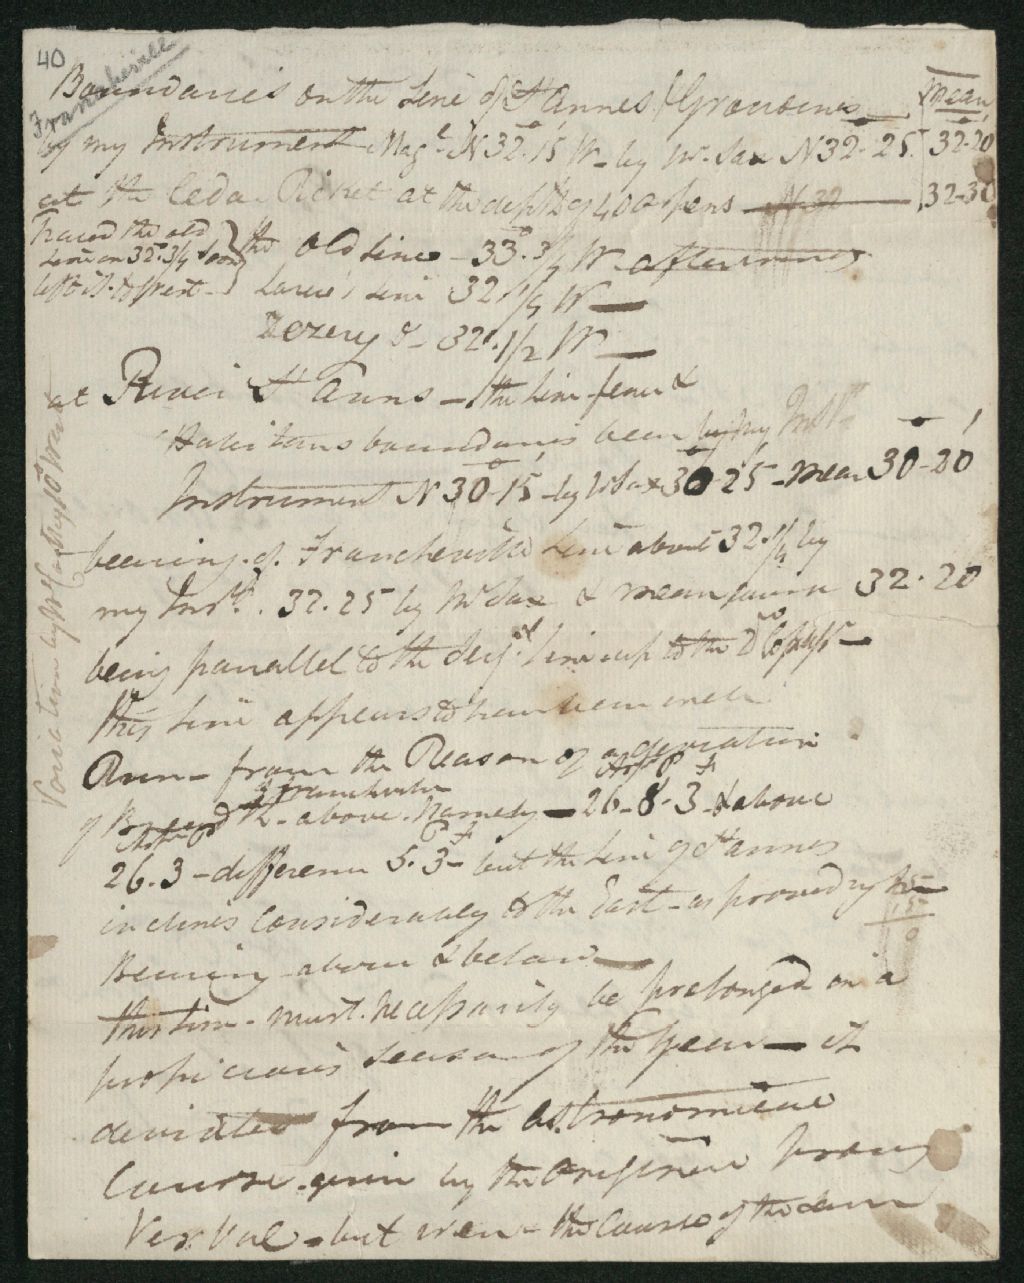 40
Francheville
Boundaries on the Line of St Annes & Grondines mean
by my Instrument Magt N 32°.15' W - by Mr Sax N 32°-25' 32°-20'
at the Cedar Picket at the depth of 40 arpens 32-30
Traced the old
Line on 32°.3/4
left it to West
the old Line - 33°.3/4 W
Line 32 1/4 W
32°.1/2 W
at River St Anns - the Line fence &
Habitans boundaries been by my Instt
Instrument N 30°-15' by Mr Sax 30°-25' - mean 30°-20'
bearing of Francheville Line about 32.1/4 by
my Inst. 32.25 by Mr Sax & mean 32.20
being parallel to the Line up to the
this Line appears to have been
Run - from the Reason of a deviation
of Francheville
above. Namely - 26-8-3 - & above
26.3 - difference 5.3 - but the Line of St annes
inclines Considerably to the East - as proved by the
Bearing above & below
this Line - must necessarily be prolonged on a
propicious season of the year - it
deviates from the astronomical
Course given by the Original
Verbal - but even - the Course of the
Variation by